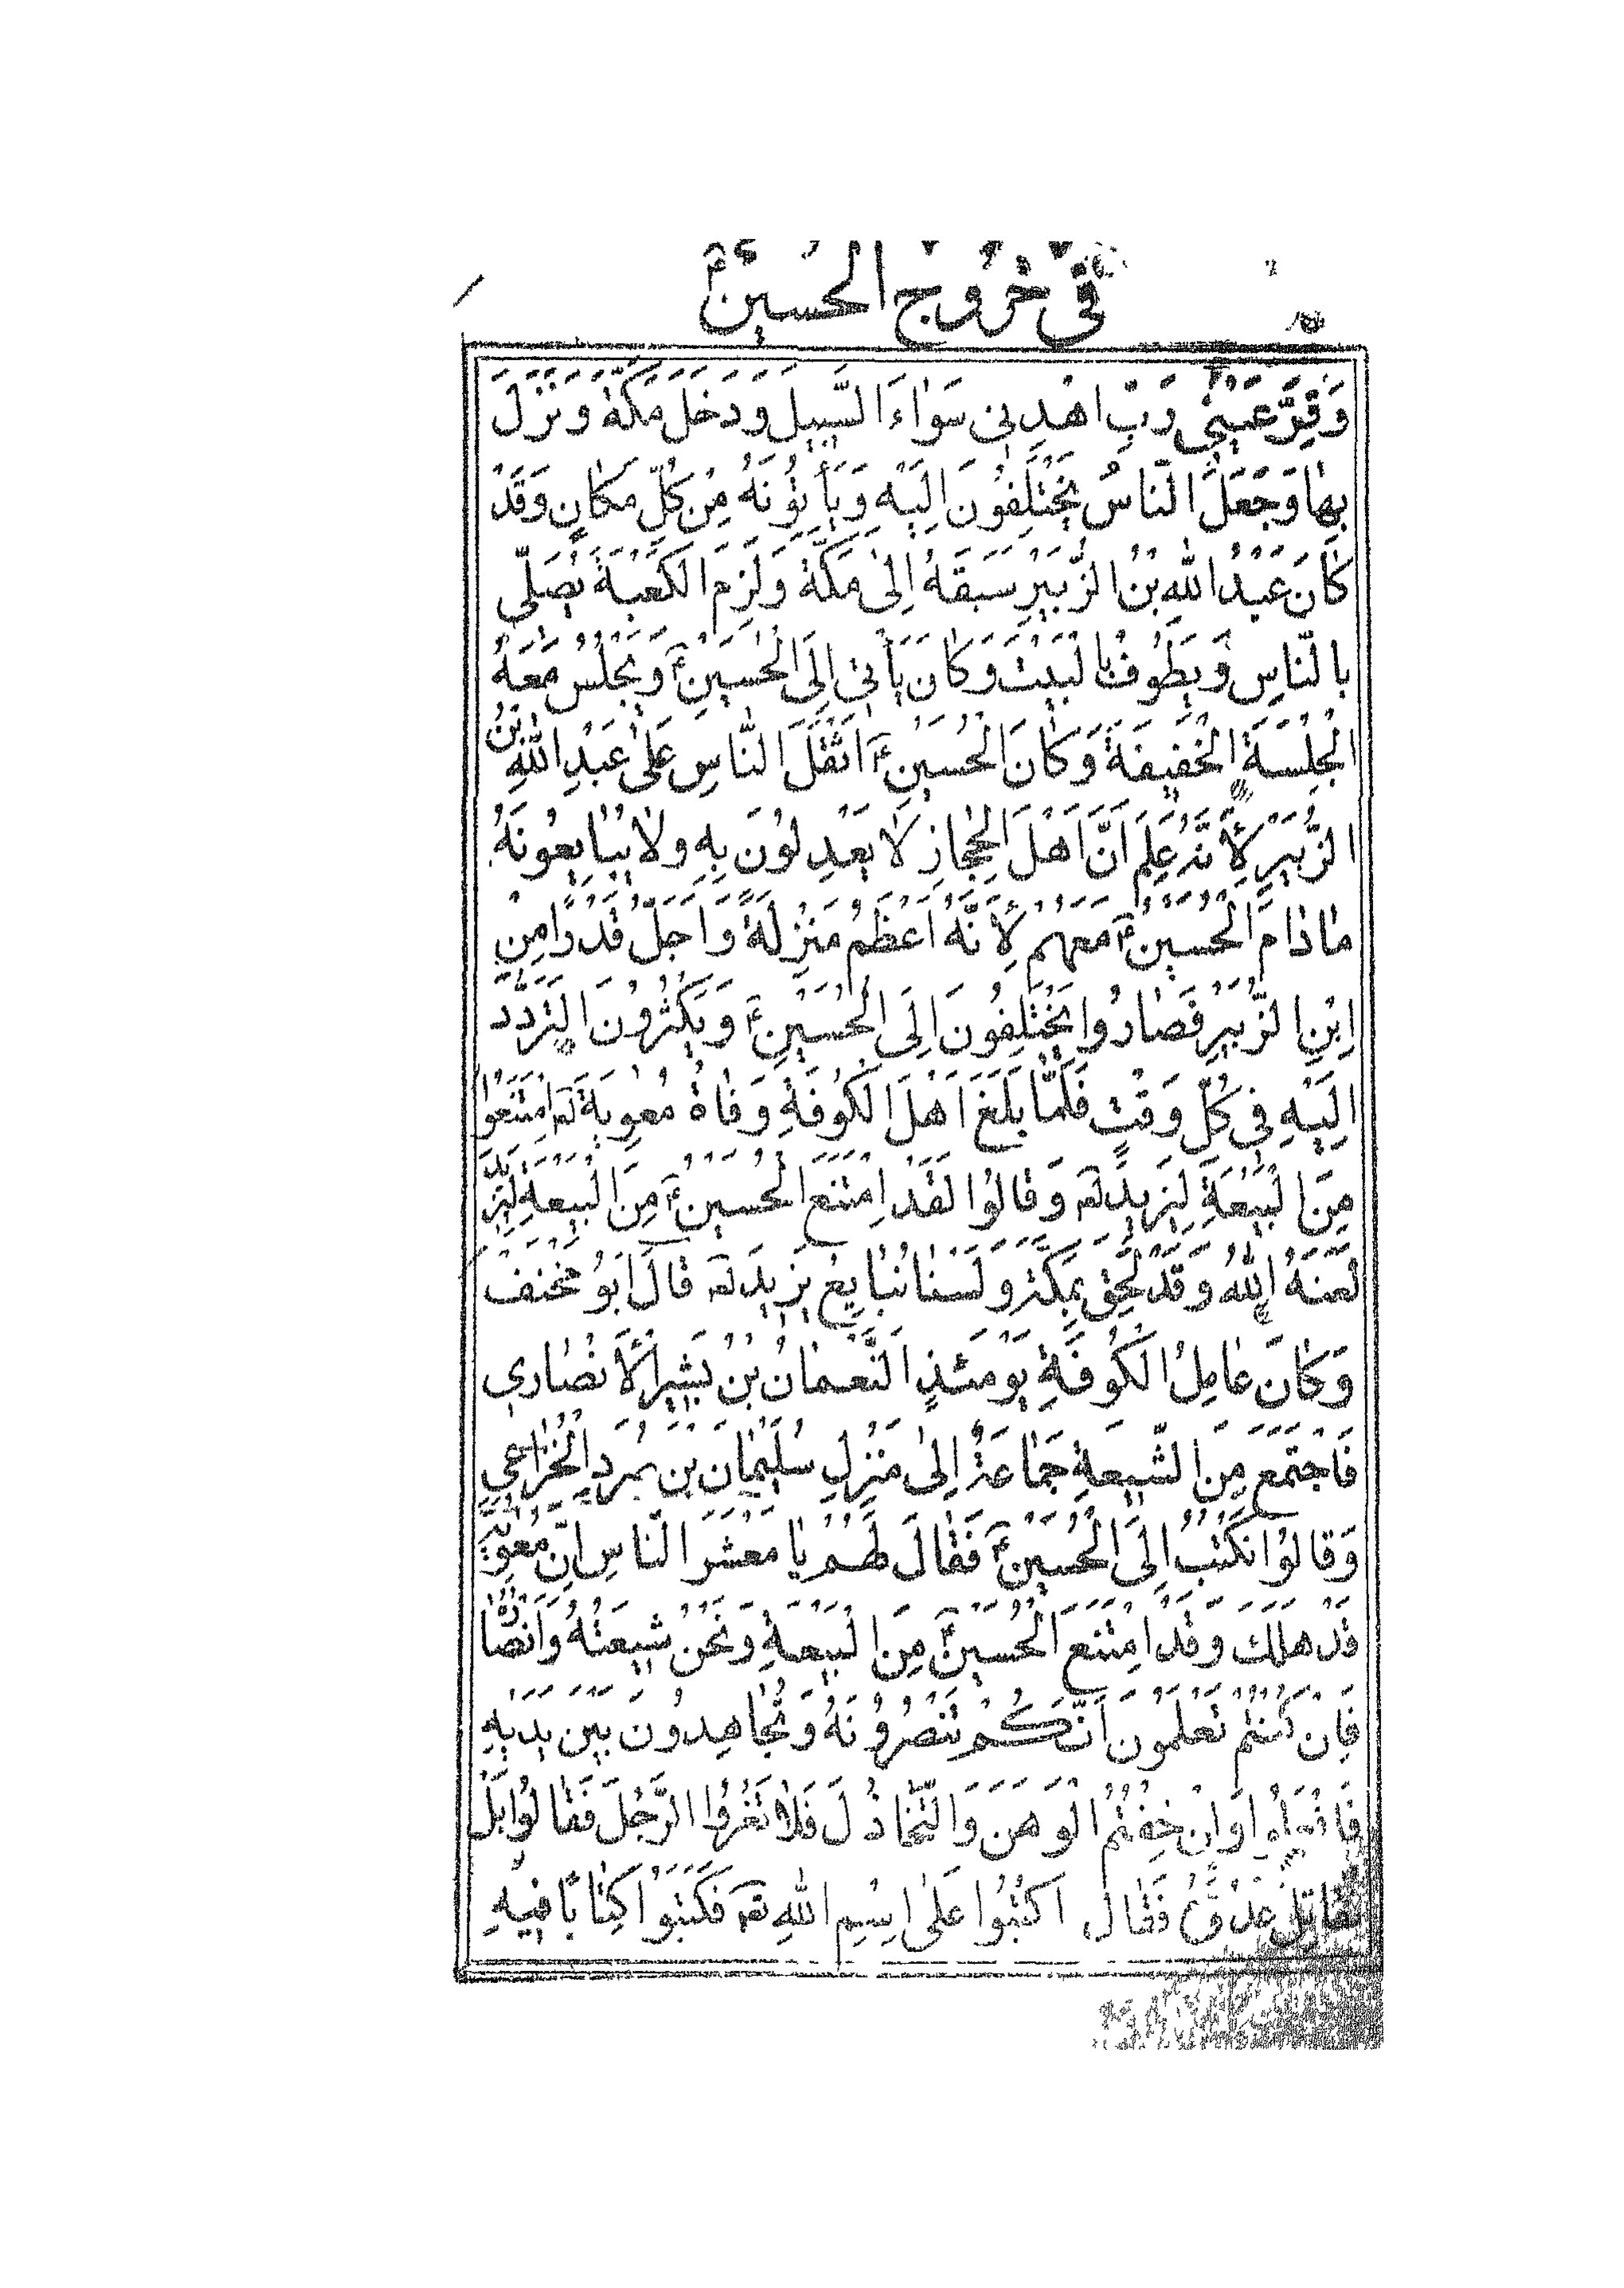 في خروج الحسين ع
وَقِرَّ عَيْنِي وَرَبِّ اهْدِنِي سَوَاءَ السَّبِيلِ وَدَخَلَ مَكَّةَ وَنَزَلَ
بِهَا وَجَعَلَ النَّاسُ يَخْتَلِفُونَ إِلَيْهِ وَيَأْتُونَهُ مِنْ كُلِّ مَكَانٍ وَقَدْ
كَانَ عَبْدُ اللهِ بْنُ الزُّبَيْرِ سَبَقَهُ إِلَى مَكَّةَ وَلَزِمَ الْكَعْبَةَ يُصَلِّي
بِالنَّاسِ وَيَطُوفُ بِالْبَيْتِ وَكَانَ يَأْتِي إِلَى الْحُسَيْنِ ع وَيَجْلِسُ مَعَهُ
الْجِلْسَةَ الْخَفِيفَةَ وَكَانَ الْحُسَيْنُ ع اَثْقَلَ النَّاسِ عَلَى عَبْدِ اللهِ بْنِ
الزُّبَيْرِ لِأَنَّهُ عَلِمَ اَنَّ اَهْلَ الْحِجَازِ لَا يَعْدِلُونَ بِهِ وَلَا يُبَايِعُونَهُ
مَا دَامَ الْحُسَيْنُ ع مَعَهُمْ لِأَنَّهُ اَعْظَمُ مَنْزِلَةً وَاَجَلُّ قَدْرًا مِنِ
ابْنِ الزُّبَيْرِ فَصَارُوا يَخْتَلِفُونَ اِلَى الْحُسَيْنِ ع وَيَكْثُرُونَ التَّرَدُّدَ
اِلَيْهِ فِي كُلِّ وَقْتٍ فَلَمَّا بَلَغَ اَهْلَ الْكُوفَةِ وَفَاةُ مُعٰوِيَةَ لعه امْتَنَعُوا
مِنَ الْبَيْعَةِ لِيَزِيدَ لعه وَقَالُوا لَقَدِ امْتَنَعَ الْحُسَيْنُ ع مِنَ الْبَيْعَةِ لِيَزِيدَ
لَعَنَهُ اللهُ وَقَدْ لَحِقَ بِمَكَّةَ وَلَسْنَا نُبَايِعُ يَزِيدَ لعه قَالَ اَبُو مِخْنَفْ
وَكَانَ عَامِلُ الْكُوفَةِ يَوْمَئِذٍ النُّعْمَانُ بْنُ بَشِيرِ الْأَنْصَارِي
فَاجْتَمَعَ مِنَ الشِّيعَةِ جَمَاعَةٌ اِلَى مَنْزِلِ سُلَيْمَانَ بْنِ صُرَدِ الْخُزَاعِيِّ
وَقَالُوا نَكْتُبُ اِلَى الْحُسَيْنِ ع فَقَالَ لَهُمْ يَا مَعْشَرَ النَّاسِ اِنَّ مُعٰوِيَةَ
قَدْ هَلَكَ وَقَدِ امْتَنَعَ الْحُسَيْنُ ع مِنَ الْبَيْعَةِ وَنَحْنُ شِيعَتُهُ وَاَنْصَا
فَاِنْ كُنْتُمْ تَعْلَمُونَ اَنَّكُمْ تَنْصُرُونَهُ وَتُجَاهِدُونَ بَيْنَ يَدَيْهِ
وَاِنْ خِفْتُمُ الْوَهَنَ وَالتَّخَاذُلَ فَلَا تَغُرُّوا الرَّجُلَ فَقَالُوا بَلْ
نُقَاتِلُ عَدُوَّهُ فَقَالَ اكْتُبُوا عَلَى اسْمِ اللهِ تعه فَكَتَبُوا كِتَابًا فِيهِ